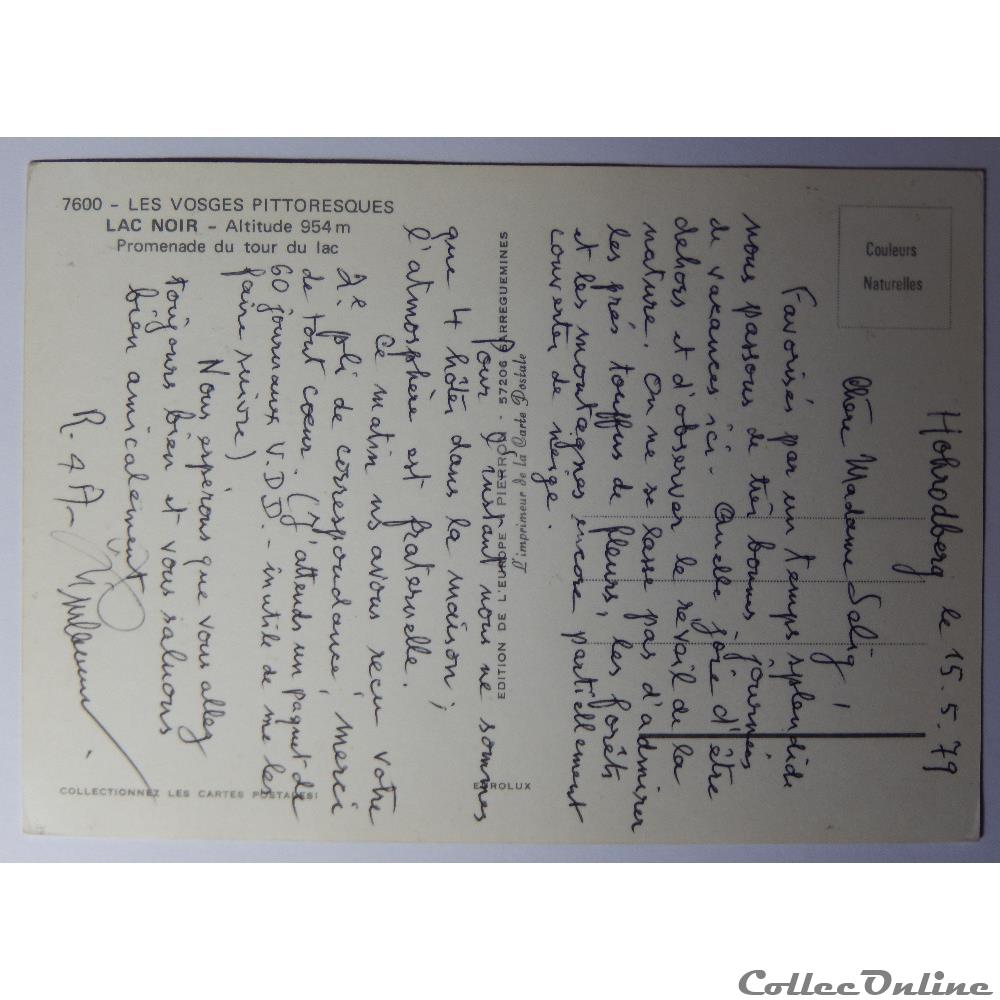 7600 - LES VOSGES PITTORESQUES
LAC NOIR - Altitude 954 m
Promenade du tour du lac
Couleurs
Naturelles
EDITION DE L'EUROPE PIERRON - 57206 SARREGUEMINES
L'imprimeur de la Carte Postale
EUROLUX
COLLECTIONNEZ LES CARTES POSTALES!
Hohrodberg le 15.5.79
Chère Madame Salig,
Favorisés par un temps splendide
nous passons de très bonnes journées
de vacances ici. Quelle joie d'être
dehors et d'observer le réveil de la
nature. On ne se lasse pas d'admirer
les prés touffus de fleurs, les forêts
et les montagnes encore partiellement
couvertes de neige.
Pour l'instant nous ne sommes
que 4 hôtes dans la maison ;
l'atmosphère est fraternelle.
Ce matin ns avons reçu votre
2e pli de correspondance, merci
de tout cœur. (J'attends un paquet de
60 journaux V.D.D. - inutile de me les
faire suivre)
Nous espérons que vous allez
toujours bien et vous saluons
bien amicalement
R. 4 A-
CollecOnline